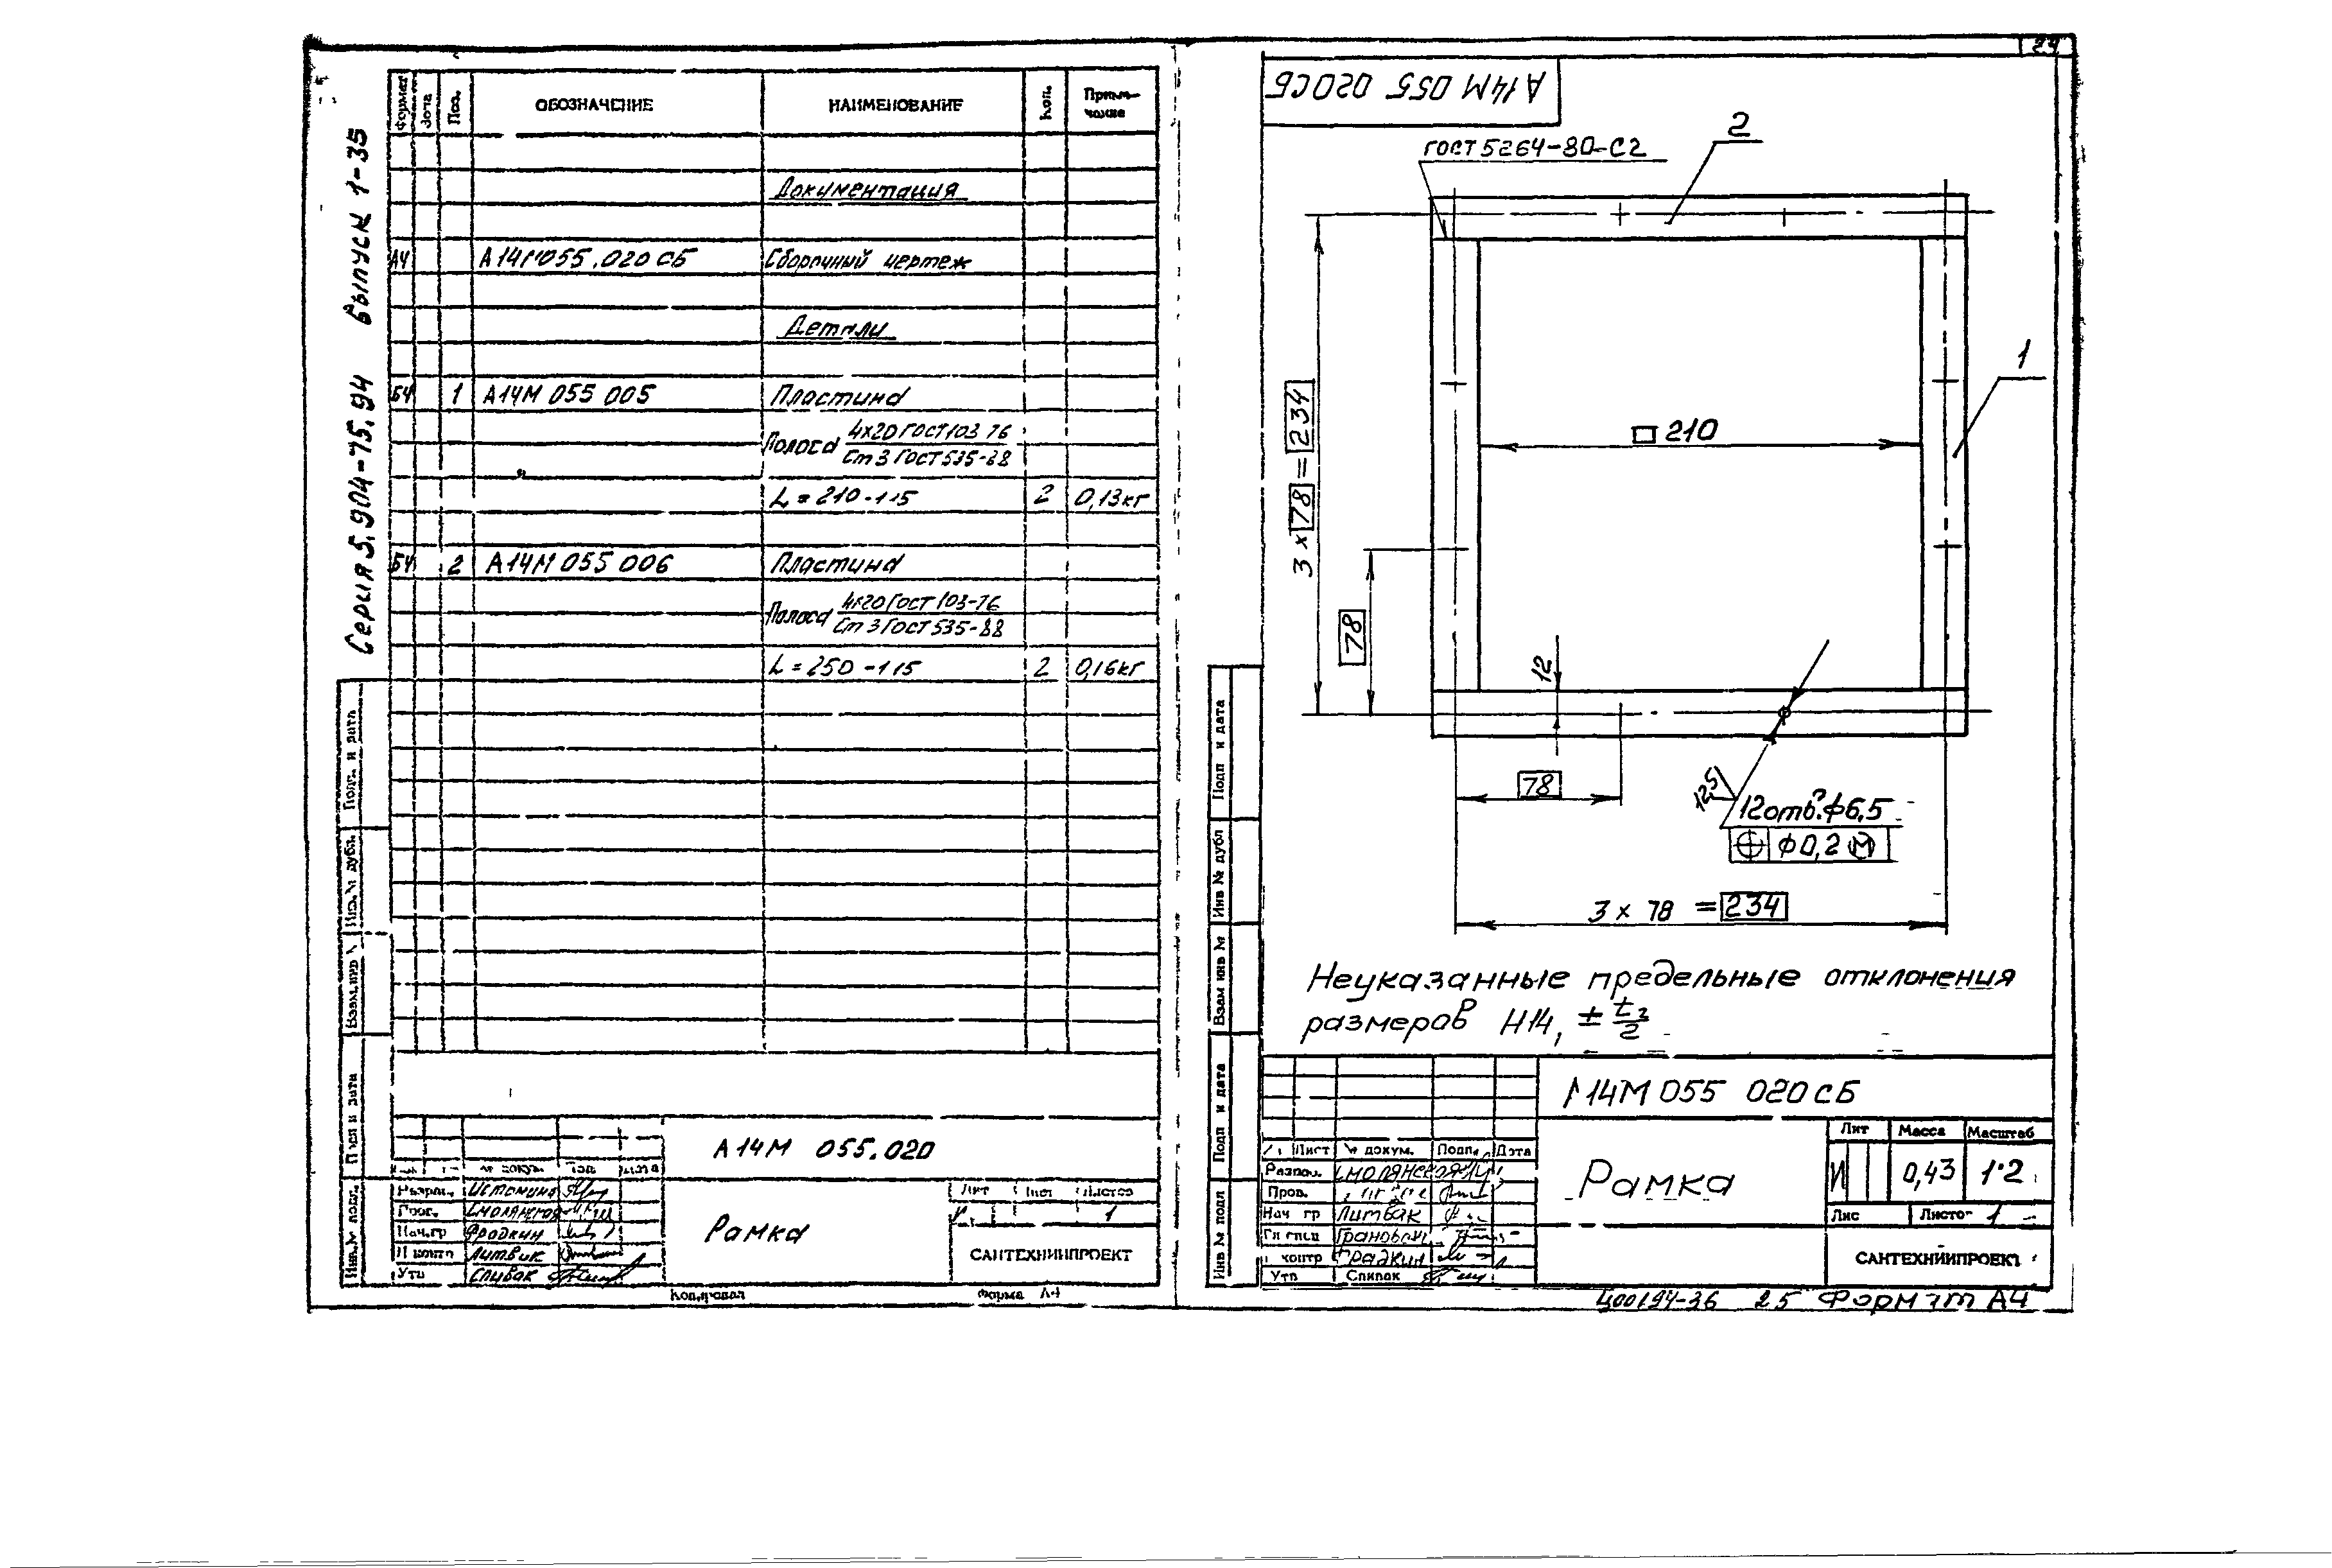 24
Серия 5.904-75.94 Выпуск 1-35
Формат Зона Поз. ОБОЗНАЧЕНИЕ НАИМЕНОВАНИЕ Кол. Приме-
чание
Документация
А4 А14М055.020 СБ Сборочный чертеж
Детали
Б4 1 А14М 055 005 Пластина
Полоса 4х20 ГОСТ 103-76
Ст 3 ГОСТ 535-88
L = 210-1.15 2 0,13кг
Б4 2 А14М 055 006 Пластина
Полоса 4х20 ГОСТ 103-76
Ст 3 ГОСТ 535-88
L = 250-1.15 2 0,16кг
Подп. и дата
Инв.№ дубл.
Взам.инв №
Подп и дата
Инв.№ подл.
А14М 055.020
№ докум. Подп Дата
Разраб. Истомина
Пров. Смолянская
Нач.гр Фрадкин
Н контр Литвак
Утв Спивак
Рамка
Лит Лист Листов
1
САНТЕХНИИПРОЕКТ
Копировал Форма А4
А14М 055 020СБ
ГОСТ 5264-80-С2
2
1
□ 210
3 х 78 = 234
78
12
78
12,5
12 отв. ф6,5
ф0,2 М
3 х 78 = 234
Неуказанные предельные отклонения
размеров Н14, ± t2/2
Подп и дата
Инв № дубл
Взам инв №
Подп и дата
Инв № подл
А14М 055 020 СБ
Лист № докум. Подп. Дата
Разраб. Смолянская
Пров.
Нач гр Литвак
Гл спец Грановский
контр Фрадкин
Утв Спивак
Рамка
Лит Масса Масштаб
И 0,43 1:2
Лис Листо 1
САНТЕХНИИПРОЕКТ
Ц00194-36 25 Формат А4